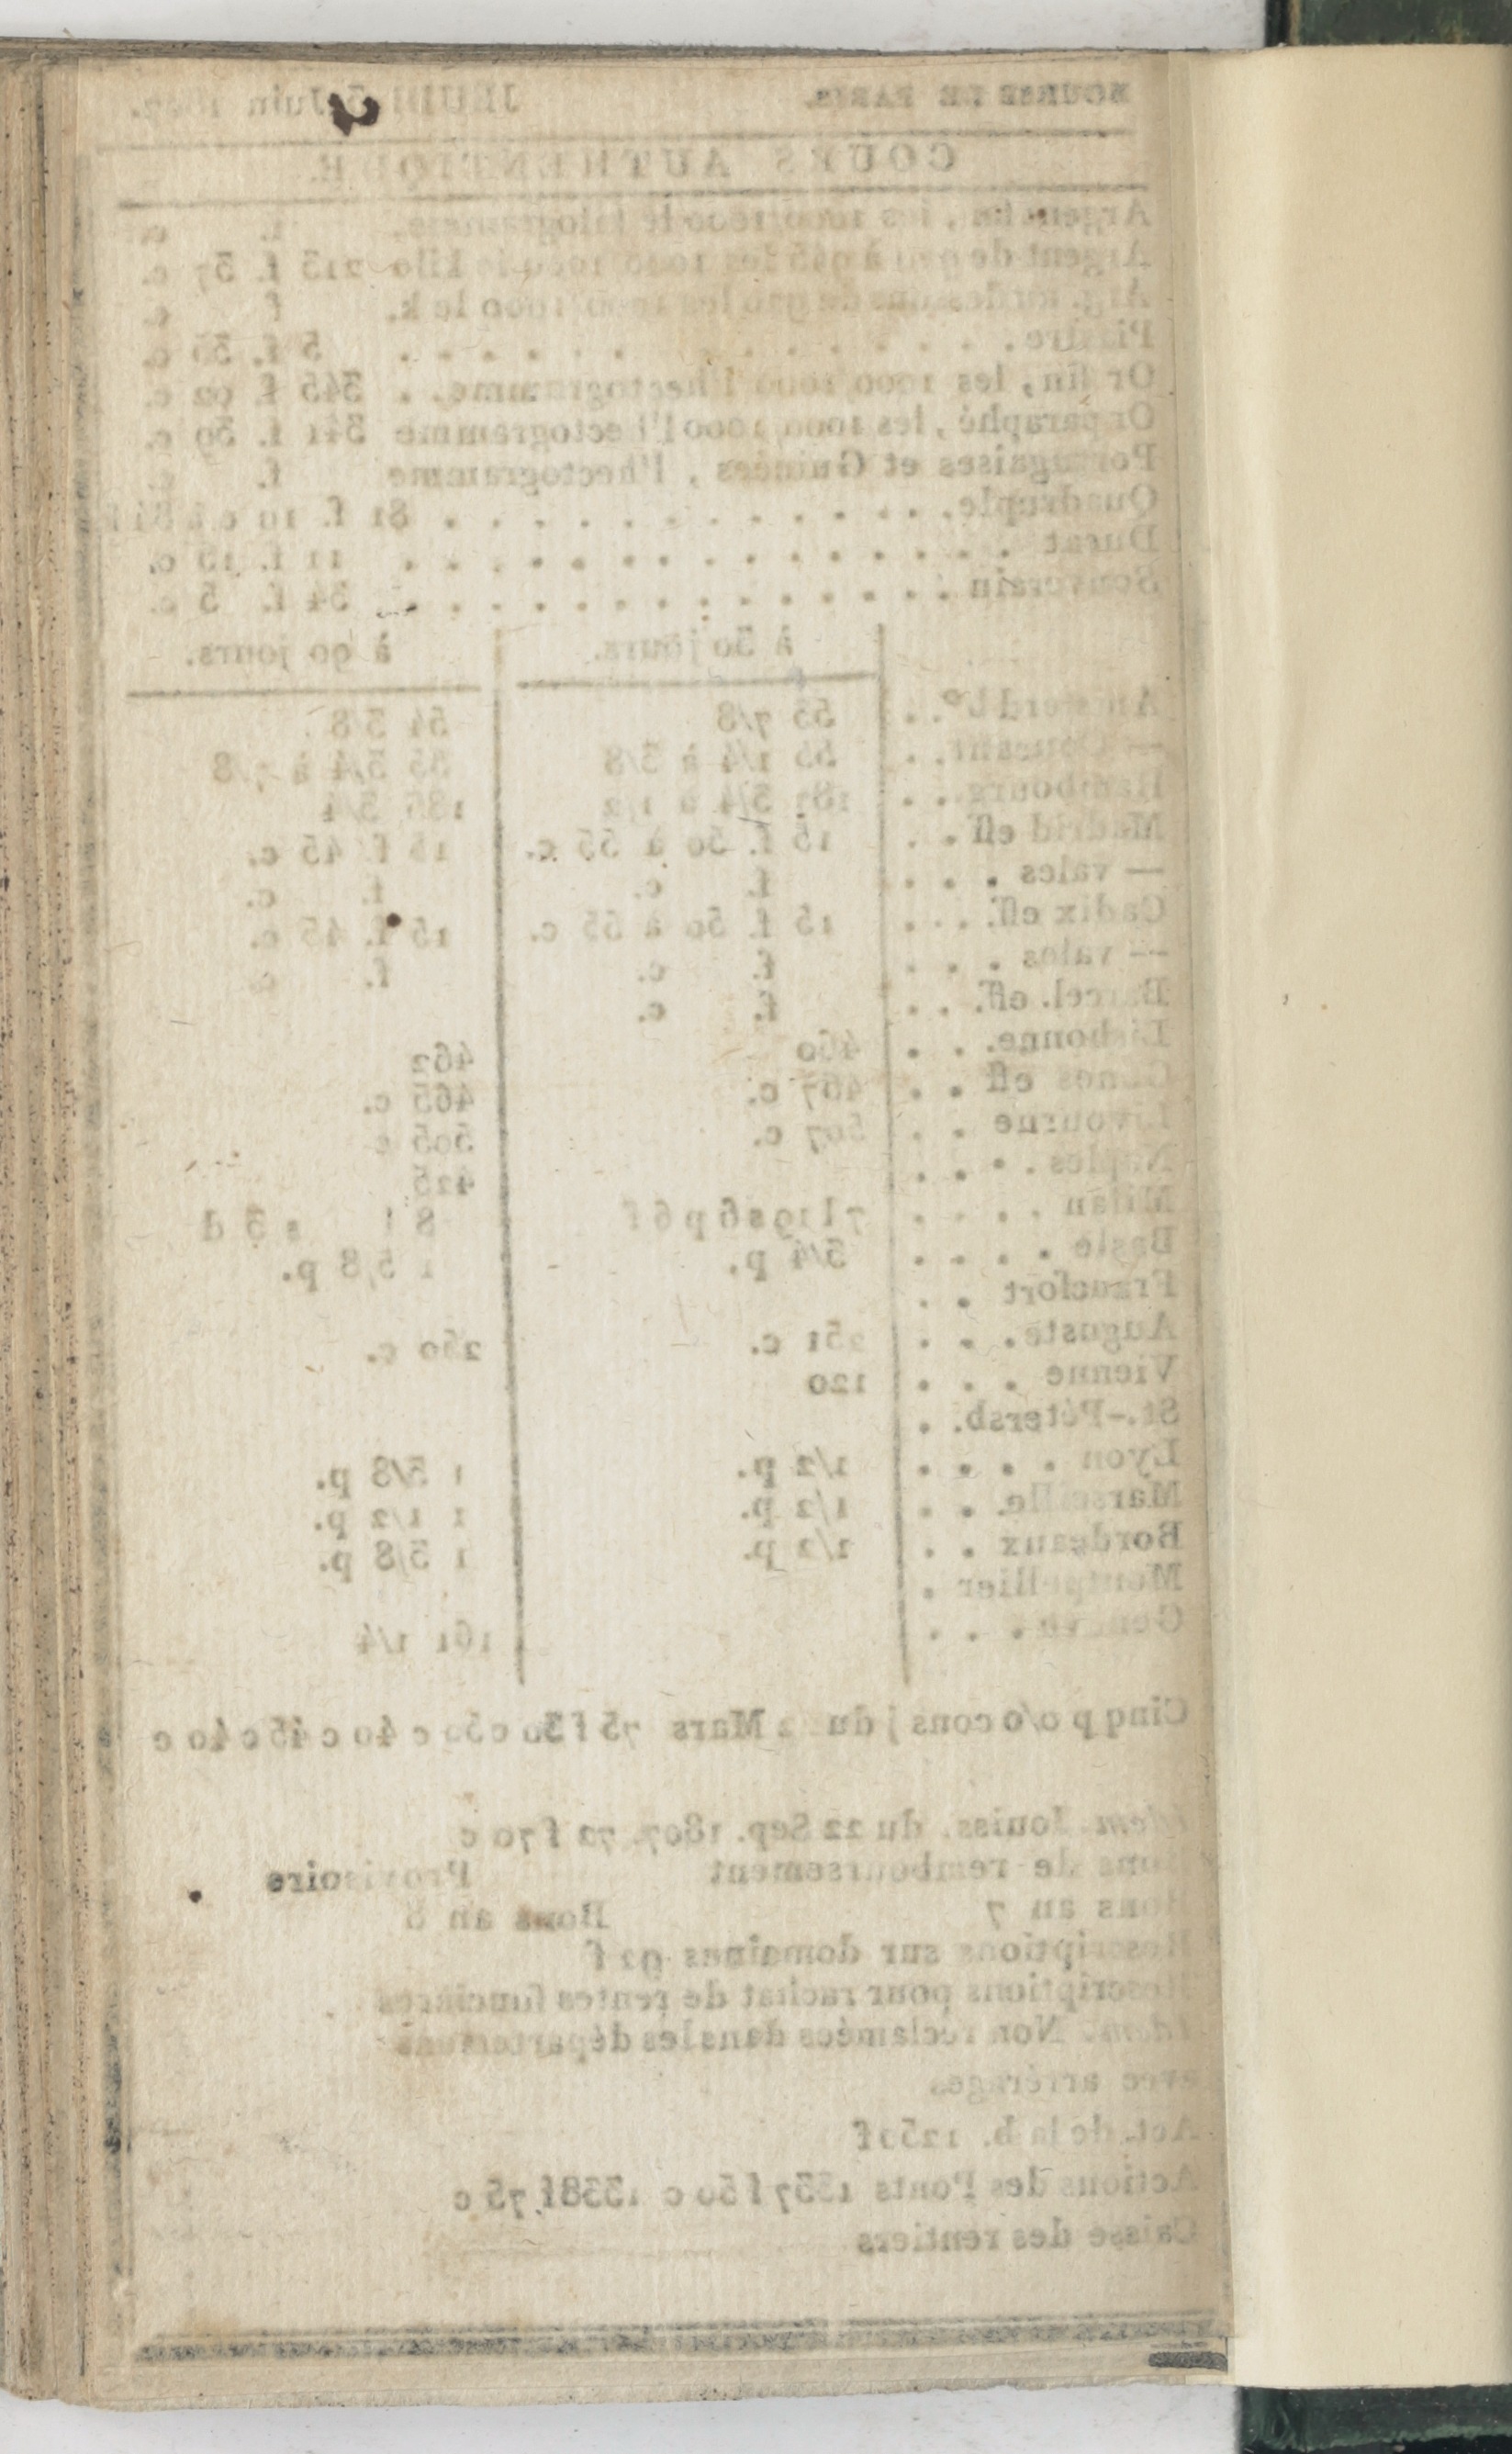 BOURSE DE PARIS. JEUDI Juin
COURS AUTHENTIQUE.
Argent fin, les 1000/1000 le kilogramme. f. c.
Argent de à les 1000 le kilo 213 f. 37 c.
Arg. au dessous de 900 les 1000/1000 le k. f c
Piastre. . . . . . . . . . . 5 f. c.
Or fin, les 1000/1000 l'hectogramme. . 345 f. 02 c.
Or paraphé, les 1000/1000 l'hectogramme 341 f. 39 c.
Portugaises et Guinées, l'hectogramme f. c.
Quadruple. . . . . . . . . . . . . 81 f. 10 c à 81 f
Ducat . . . . . . . . . . . . . . 11 f. c.
Souverain . . . . . . . . . . . . 34 f. 5 c.
à 30 jours. à 90 jours.
Amsterd bº. . 53 7/8 54 5/8
— Courant. . 55 1/4 à 3/8 55 3/4 à 7/8
Hambourg. . 187 3/4 à 1/2 186 3/4
Madrid eff . . 15 f. 50 à 55 c. 15 f. 45 c.
— vales . . . f. c. f. c.
Cadix eff. . . . 15 f. 50 à 55 c. 15 f. 45 c.
— vales . . . f. c. f. c.
Barcel. eff. . . f. c.
Lisbonne. . . 460 462
Gênes eff . . 467 c. 465 c.
Livourne . . 507 c. 505 c
Naples . . . . 425
Milan . . . . 7 l 19 s 6 p 6 f 8 l s 3 d
Basle . . . . 3/4 p. 1 5/8 p.
Francfort . .
Auguste. . . 251 c. 250 c.
Vienne . . . 120
St.-Pétersb. .
Lyon . . . . 1/2 p. 1 5/8 p.
Marseille. . . 1/2 p. 1 1/2 p.
Bordeaux . . 1/2 p. 1 5/8 p.
Montpellier .
Genève . . . 161 1/4
Cinq p o/o cons j du Mars 75 f 30 c 50 c 40 c 45 c 40 c
Idem. Jouiss. du 22 Sep. 1807. 72 f 70 c
Bons de remboursement Provisoire
Bons an 7 Bons an 8
Rescriptions sur domaines 92 f
Rescriptions pour rachat de rentes foncières
Idem. Non reclamées dans les départemens
avec arrérages
Act. de la b. f
Actions des Ponts 1337 f 50 c 1338 f 75 c
Caisse des rentiers